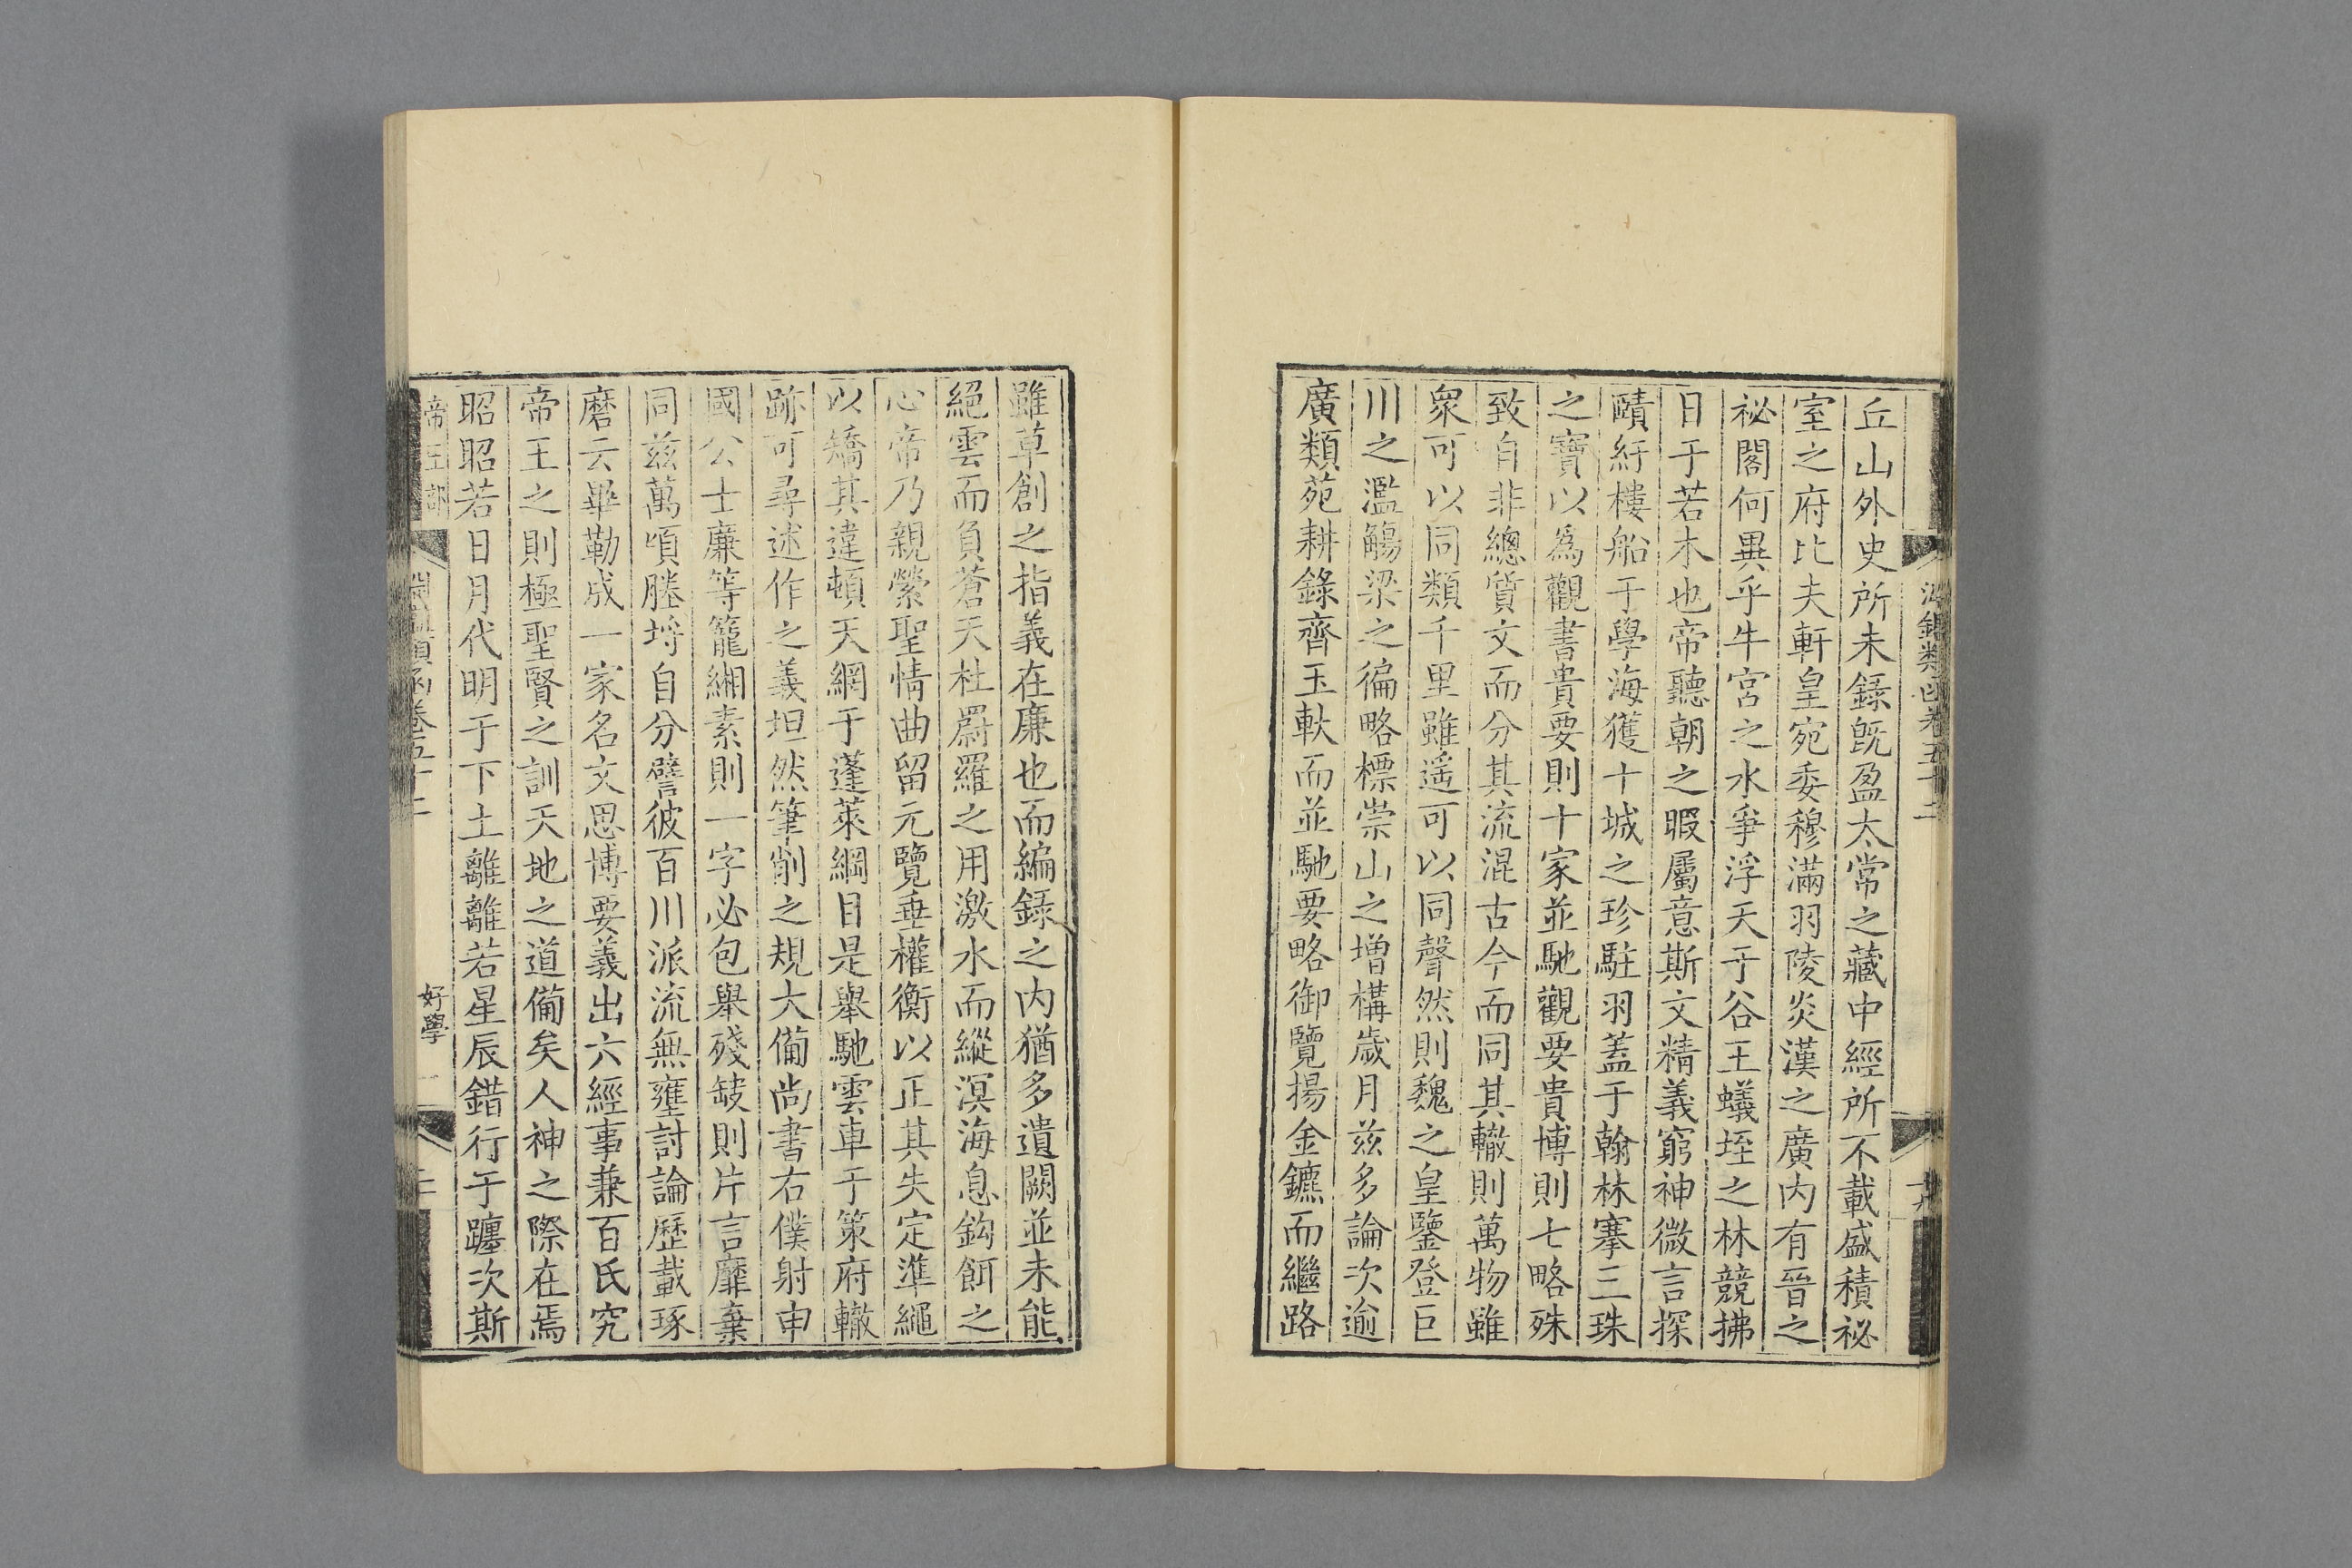 丘山外史所未錄旣盈太常之藏中經所不載盛積祕
室之府比夫軒皇宛委穆滿羽陵炎漢之廣内有晉之
祕閣何異乎牛宮之水爭浮天于谷王蟻垤之林競拂
日于若木也帝聽朝之暇屬意斯文精義窮神微言探
賾紆樓船于學海獲十城之珍駐羽蓋于翰林搴三珠
之寶以爲觀書貴要則十家並馳觀要貴博則七略殊
致自非總質文而分其流混古今而同其轍則萬物雖
衆可以同類千里雖遥可以同聲然則魏之皇鑒登巨
川之濫觴梁之徧略標崇山之增構歲月兹多論次逾
廣類苑耕錄齊玉軑而並馳要略御覽揚金鑣而繼路
雖草創之指義在廉也而編錄之内猶多遺闕並未能
絕雲而負蒼天杜罻羅之用激水而縱溟海息鈎餌之
心帝乃親縈聖情曲留元覽垂權衡以正其失定準繩
以矯其違頓天網于蓬萊綱目是舉馳雲車于策府轍
跡可尋述作之義坦然筆削之規大備尚書右僕射申
國公士廉等籠緗素則一字必包舉殘缺則片言靡棄
同兹萬頃塍埒自分譬彼百川派流無壅討論歷載琢
磨云畢勒成一家名文思博要義出六經事兼百氏究
帝王之則極聖賢之訓天地之道備矣人神之際在焉
昭昭若日月代明于下土離離若星辰錯行于躔次斯
帝王部
類函卷五十二
好學